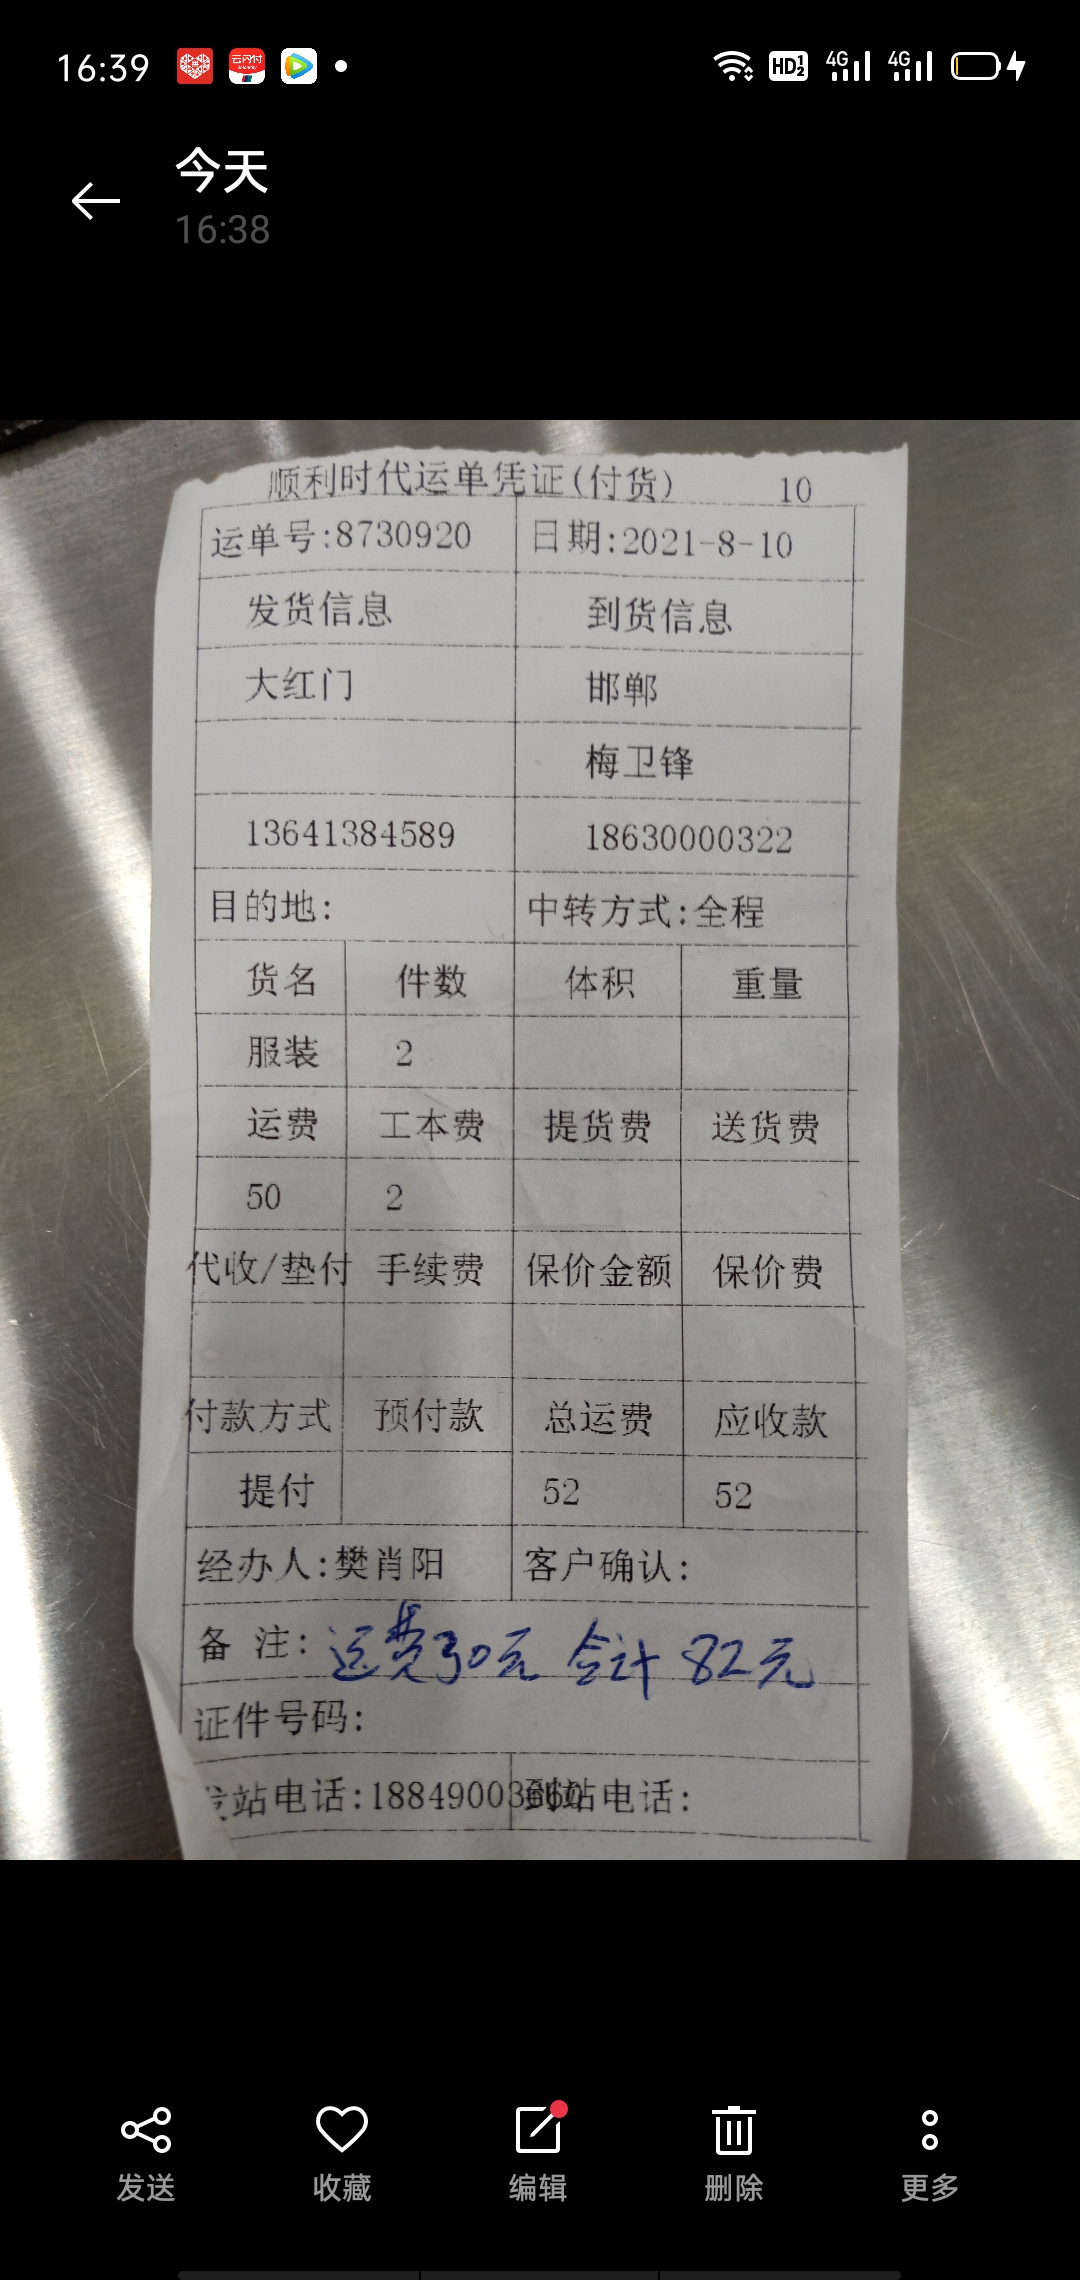 16:39
云闪付
HD 1 2
4G
4G
今天
16:38
顺利时代运单凭证(付货) 10
运单号:8730920 日期:2021-8-10
发货信息 到货信息
大红门 邯郸
梅卫锋
13641384589 18630000322
目的地: 中转方式:全程
货名 件数 体积 重量
服装 2
运费 工本费 提货费 送货费
50 2
代收/垫付 手续费 保价金额 保价费
付款方式 预付款 总运费 应收款
提付 52 52
经办人:樊肖阳 客户确认:
备 注: 运费30元 合计 82元
证件号码:
发站电话:18849003660 到站电话:
发送 收藏 编辑 删除 更多